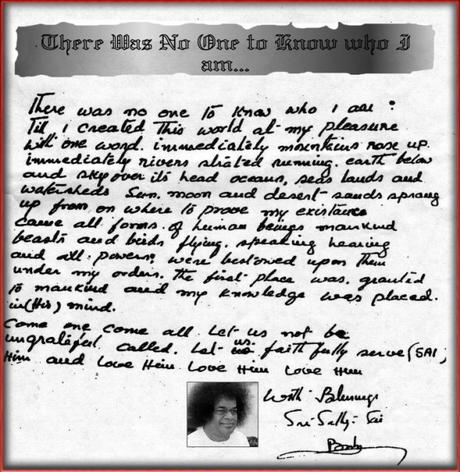 There Was No One to Know who I
am...
There was no one to know who I am ?
Til I created This world at my pleasure
with one word. immediately mountains rose up.
immediately rivers started running. earth below
and sky over its head oceans, seas lands and
watersheds Sun, moon and desert-sands sprang
up from on where to prove my existance
came all forms of human beings mankind
beasts and birds flying. speaking hearing
and all powers were bestowed upon Them
under my orders. The first place was. granted
To mankind and my knowledge was placed.
in (His) mind.
Come one come all Let us not be
ungrateful called. Let us faithfully serve (SAI)
Him and Love Him Love Him Love Him
With Blessings
Sri Sathya Sai
Baba